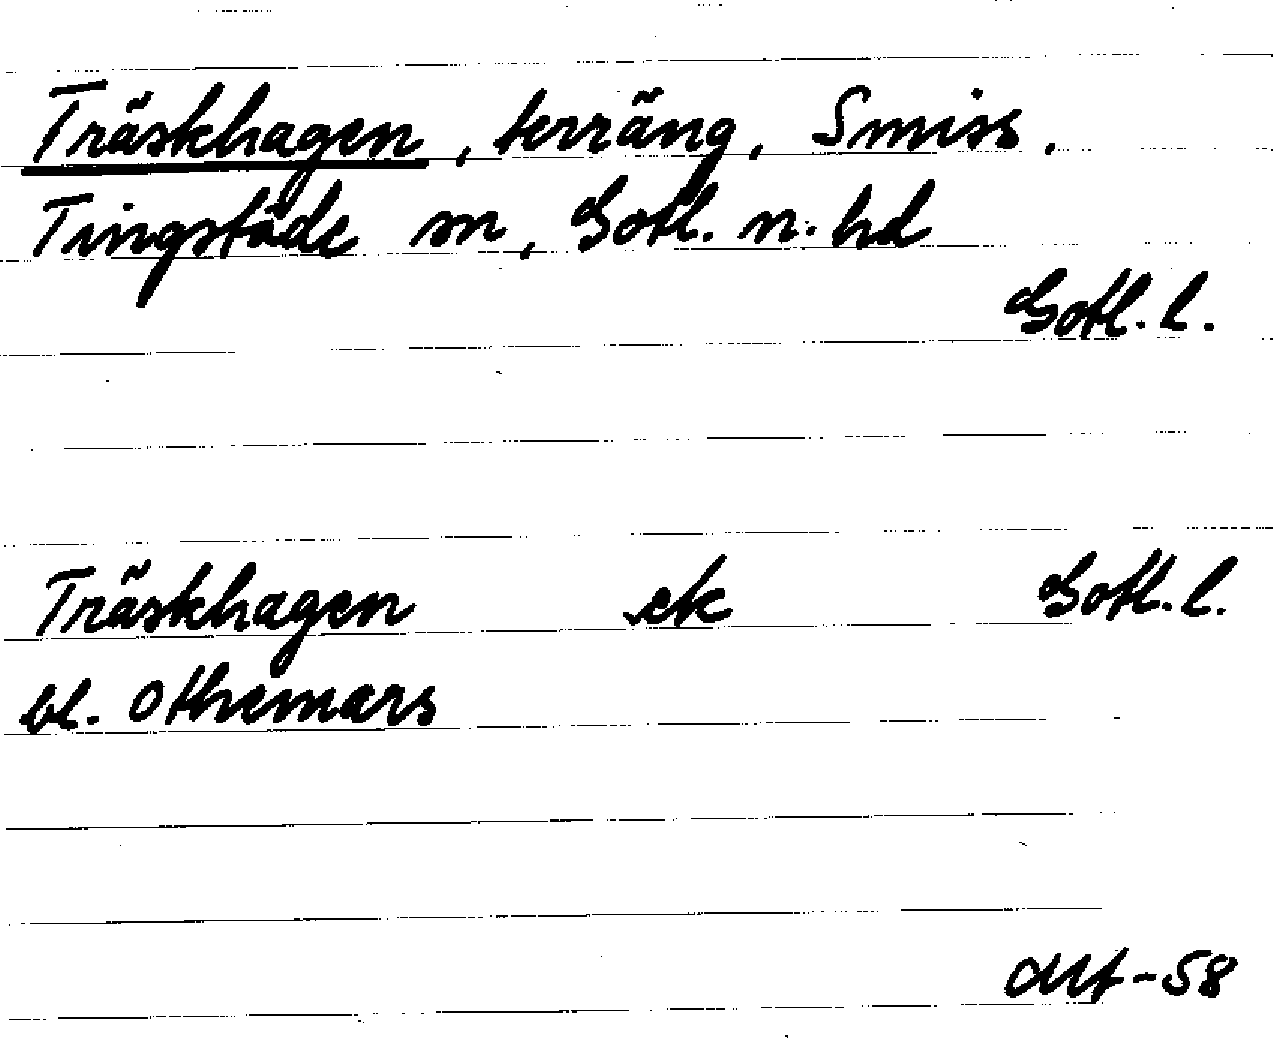 Träskhagen, terräng, Smiss.
Tingstäde sn, Gotl. n. hd
Gotl. l.
Träskhagen ek Gotl. l.
bl. Othemars
-58